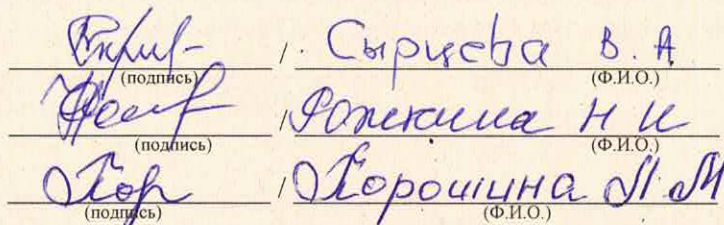 / Сырцева В. А
(подпись) (Ф.И.О.)
/ Н И
(подпись) (Ф.И.О.)
Хор / Хорошина Л. М
(подпись) (Ф.И.О.)